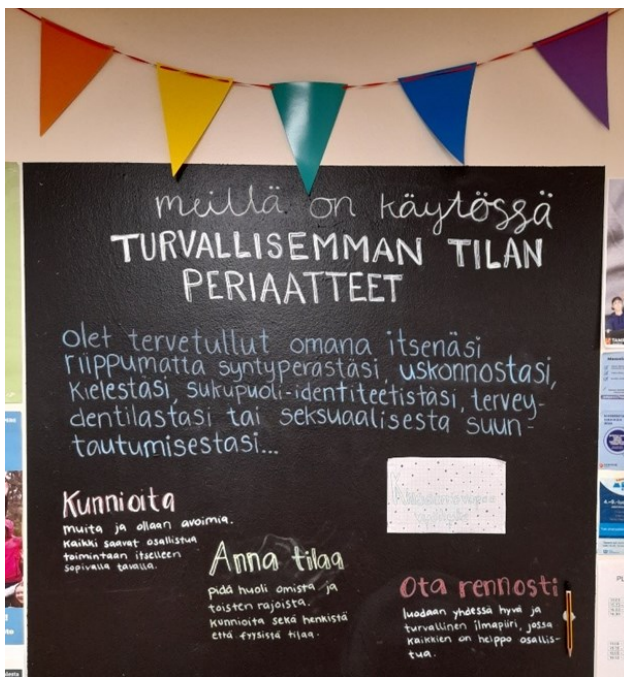 meillä on käytössä
TURVALLISEMMAN TILAN
PERIAATTEET
Olet tervetullut omana itsenäsi
riippumatta syntyperästäsi, uskonnostasi,
kielestäsi, sukupuoli-identiteetistäsi, tervey-
dentilastasi tai seksuaalisesta suun-
tautumisestasi...
Kunnioita
muita ja ollaan avoimia.
Kaikki saavat osallistua
toimintaan itselleen
sopivalla tavalla.
Anna tilaa
pidä huoli omista ja
toisten rajoista.
kunnioita sekä henkistä
että fyysistä tilaa.
Ota rennosti
luodaan yhdessä hyvä ja
turvallinen ilmapiiri, jossa
kaikkien on helppo osallis-
tua.